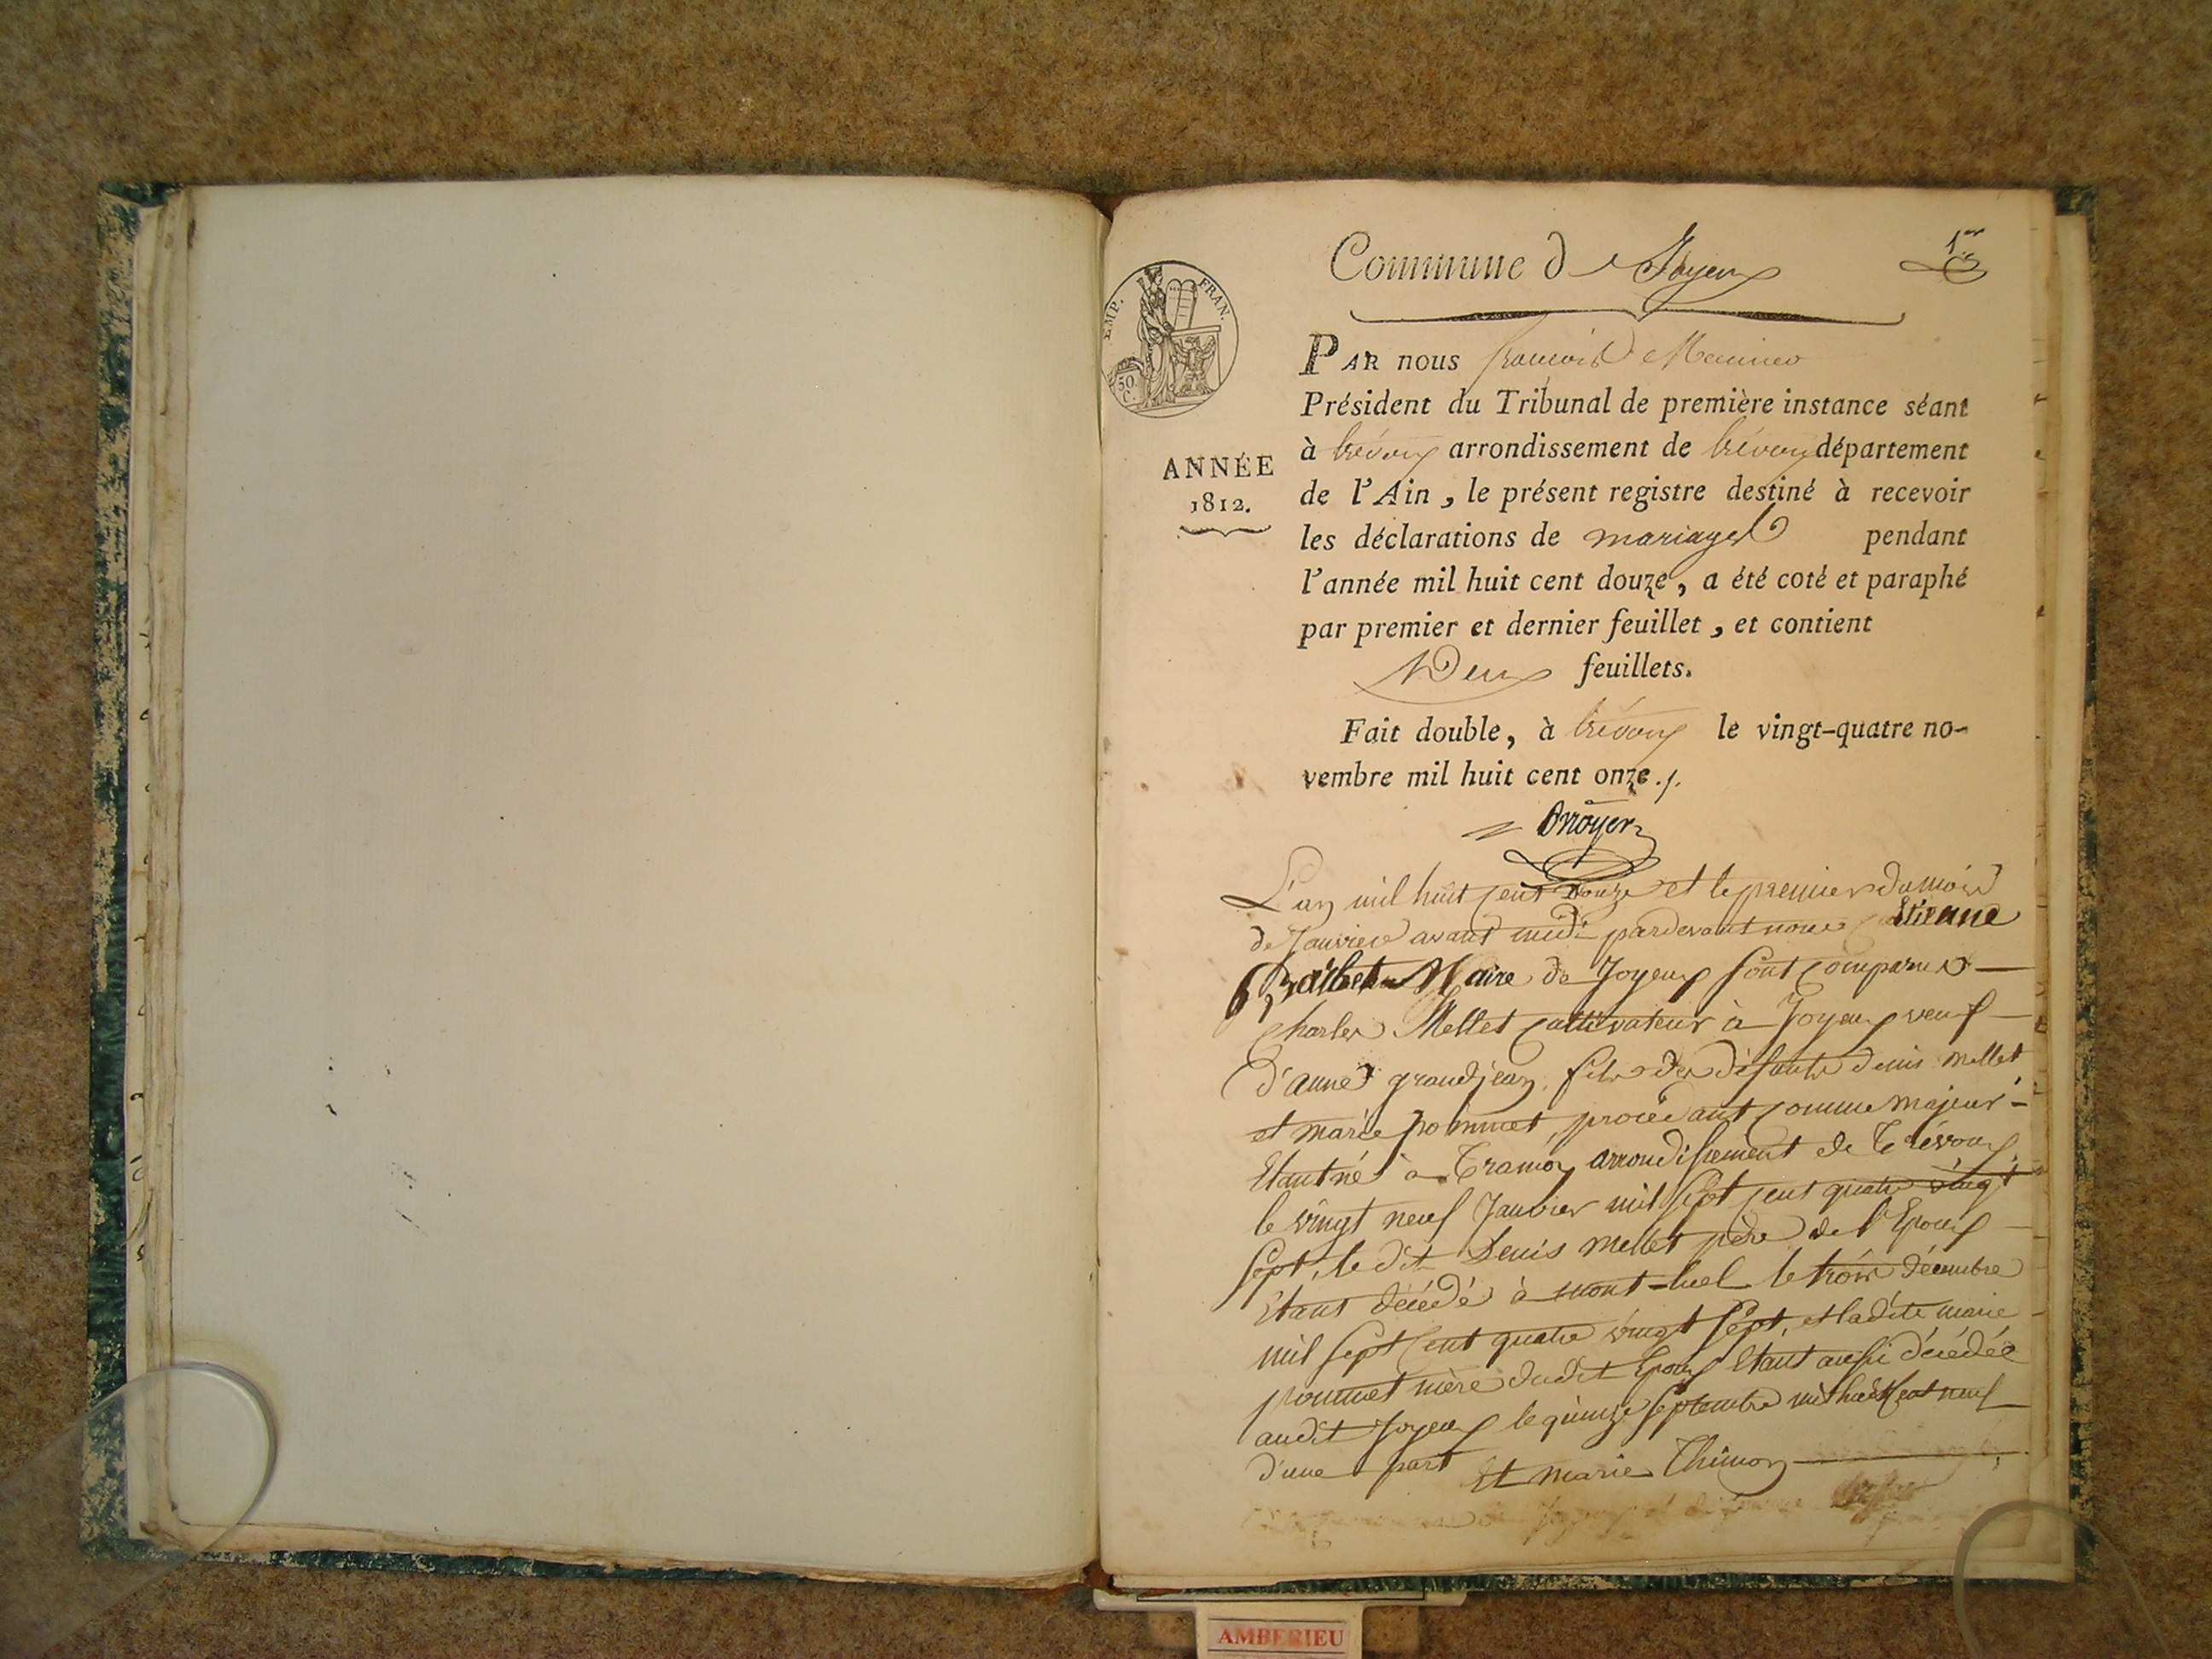 Commune de Joyeux
1er
EMP. FRAN.
50.
C.
ANNÉE
1812.
PAR nous françois
Président du Tribunal de première instance séant
à trévoux arrondissement de trévoux département
de l'Ain, le présent registre destiné à recevoir
les déclarations de mariages pendant
l'année mil huit cent douze, a été coté et paraphé
par premier et dernier feuillet, et contient
Deux feuillets.
Fait double, à trévoux le vingt-quatre no-
vembre mil huit cent onze ./.
L'an mil huit cent Douze et le premier du mois
de Janvier avant midi pardevant nous Etienne
Barbet Maire de Joyeux sont comparus
Charles Mellet cultivateur à Joyeux veuf
d'anne grandjean, fils des défunts denis mellet
et marie pommet, procédant comme majeur -
Etant né à Tramoy arrondissement de Trévoux
le vingt neuf Janvier mil sept cent quatre vingt
sept, le dit Denis mellet père de l'Epoux
Etant décédé à mont-luel le trois décembre
mil sept cent quatre vingt sept, et ladite marie
pommet mère dudit Epoux Etant aussi décédée
audit Joyeux le quinze septembre mil huit cent neuf
d'une part Et marie Thimon
AMBERIEU